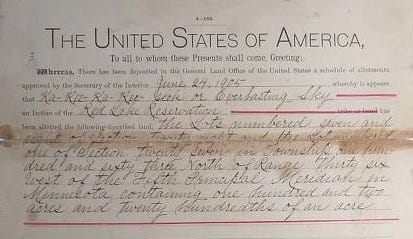 4-188.
THE UNITED STATES OF AMERICA,
To all to whom these Presents shall come, Greeting:
Whereas, There has been deposited in the General Land Office of the United States a schedule of allotments
approved by the Secretary of the Interior June 24, 1905, whereby it appears
that Sky or Everlasting Sky
an Indian of the Red Lake Reservation tribe or band has
been allotted the following-described land: the Lots numbered seven and
eight of Section twenty and the Lot numbered
one of Section twenty seven in Township one hun
dred and sixty three North of Range Thirty six
west of the Fifth Principal Meridian in
Minnesota containing one hundred and two
acres and twenty hundredths of an acre